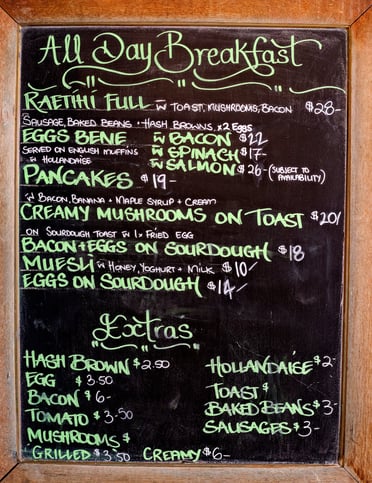 All Day Breakfast
RAETIHI FULL w̄ TOAST, MUSHROOMS, BACON $28-
SAUSAGE, BAKED BEANS + HASH BROWNS, x2 Eggs
EGGS BENE w̄ BACON $22
SERVED ON ENGLISH MUFFINS w̄ SPINACH $17-
w̄ HOLLANDAISE w̄ SALMON $26- (SUBJECT TO AVAILABILITY)
PANCAKES $19-
w̄ BACON, BANANA + MAPLE SYRUP + CREAM
CREAMY MUSHROOMS ON TOAST $20/
ON SOURDOUGH TOAST w̄ 1x FRIED EGG
BACON + EGGS ON SOURDOUGH $18
MUESLI w̄ HONEY, YOGHURT + MILK $10/
EGGS ON SOURDOUGH $14/
Extras
HASH BROWN $2.50
EGG $3.50
BACON $6-
TOMATO $3.50
MUSHROOMS $
GRILLED $3.50 CREAMY $6-
HOLLANDAISE $2-
TOAST $
BAKED BEANS $3-
SAUSAGES $3-